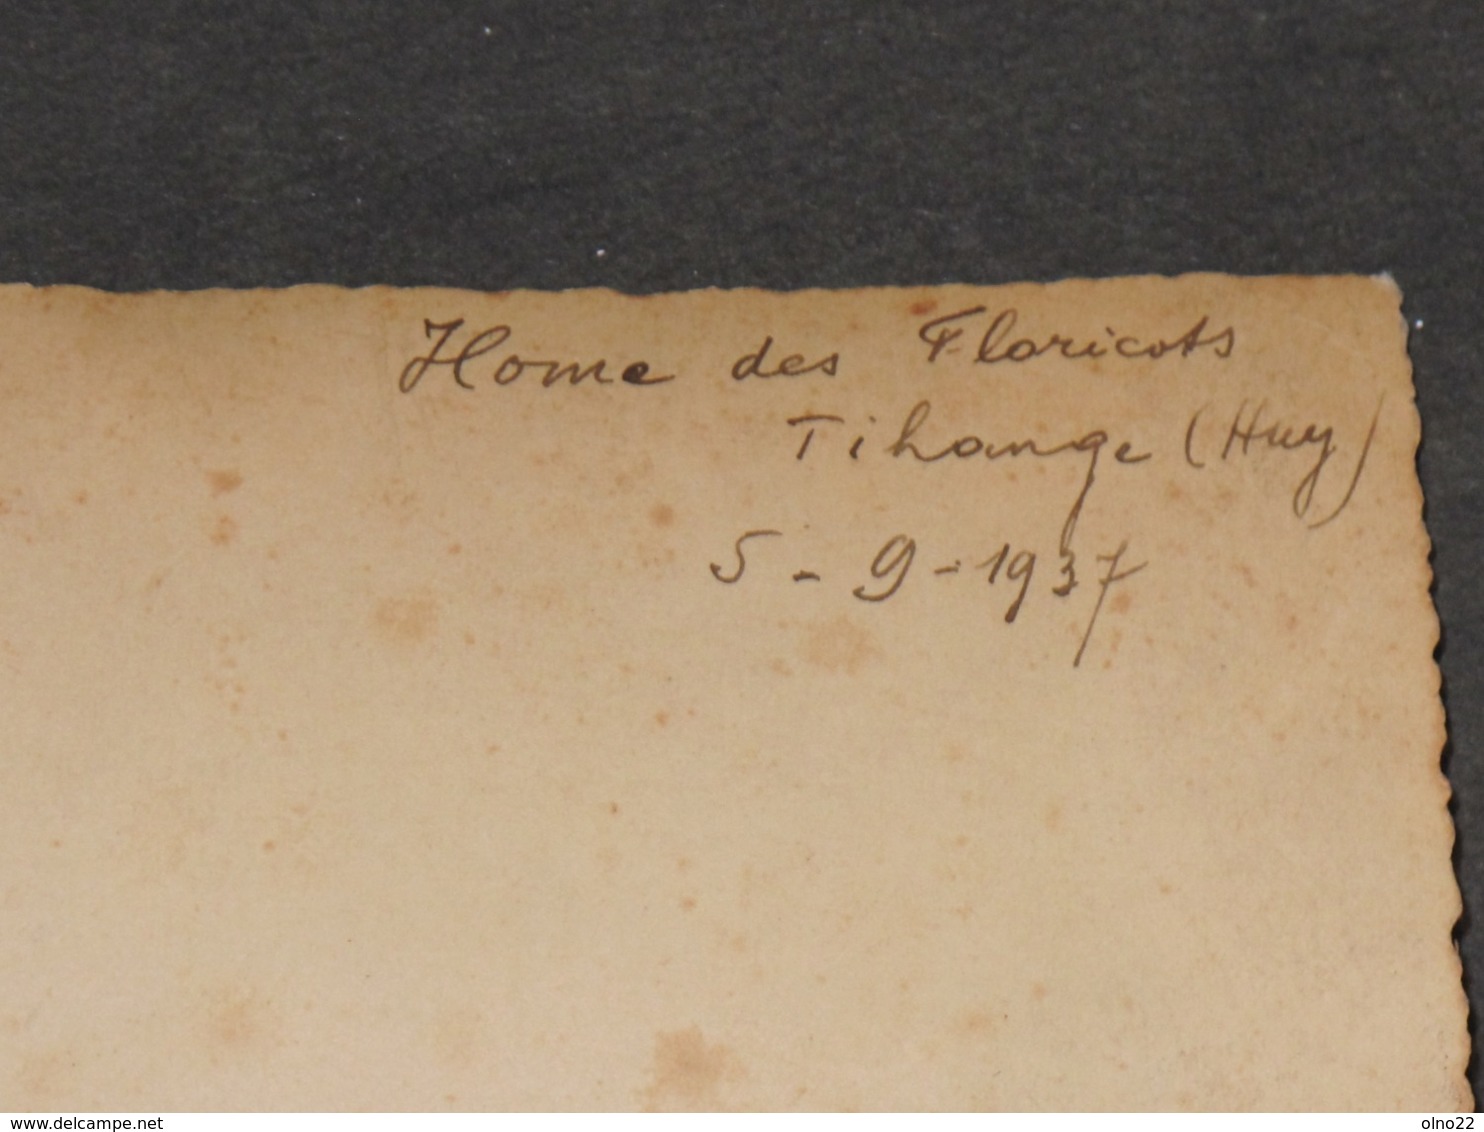 Home des Floricots
Tihange (Huy)
5-9-1937
www.delcampe.net
olno22